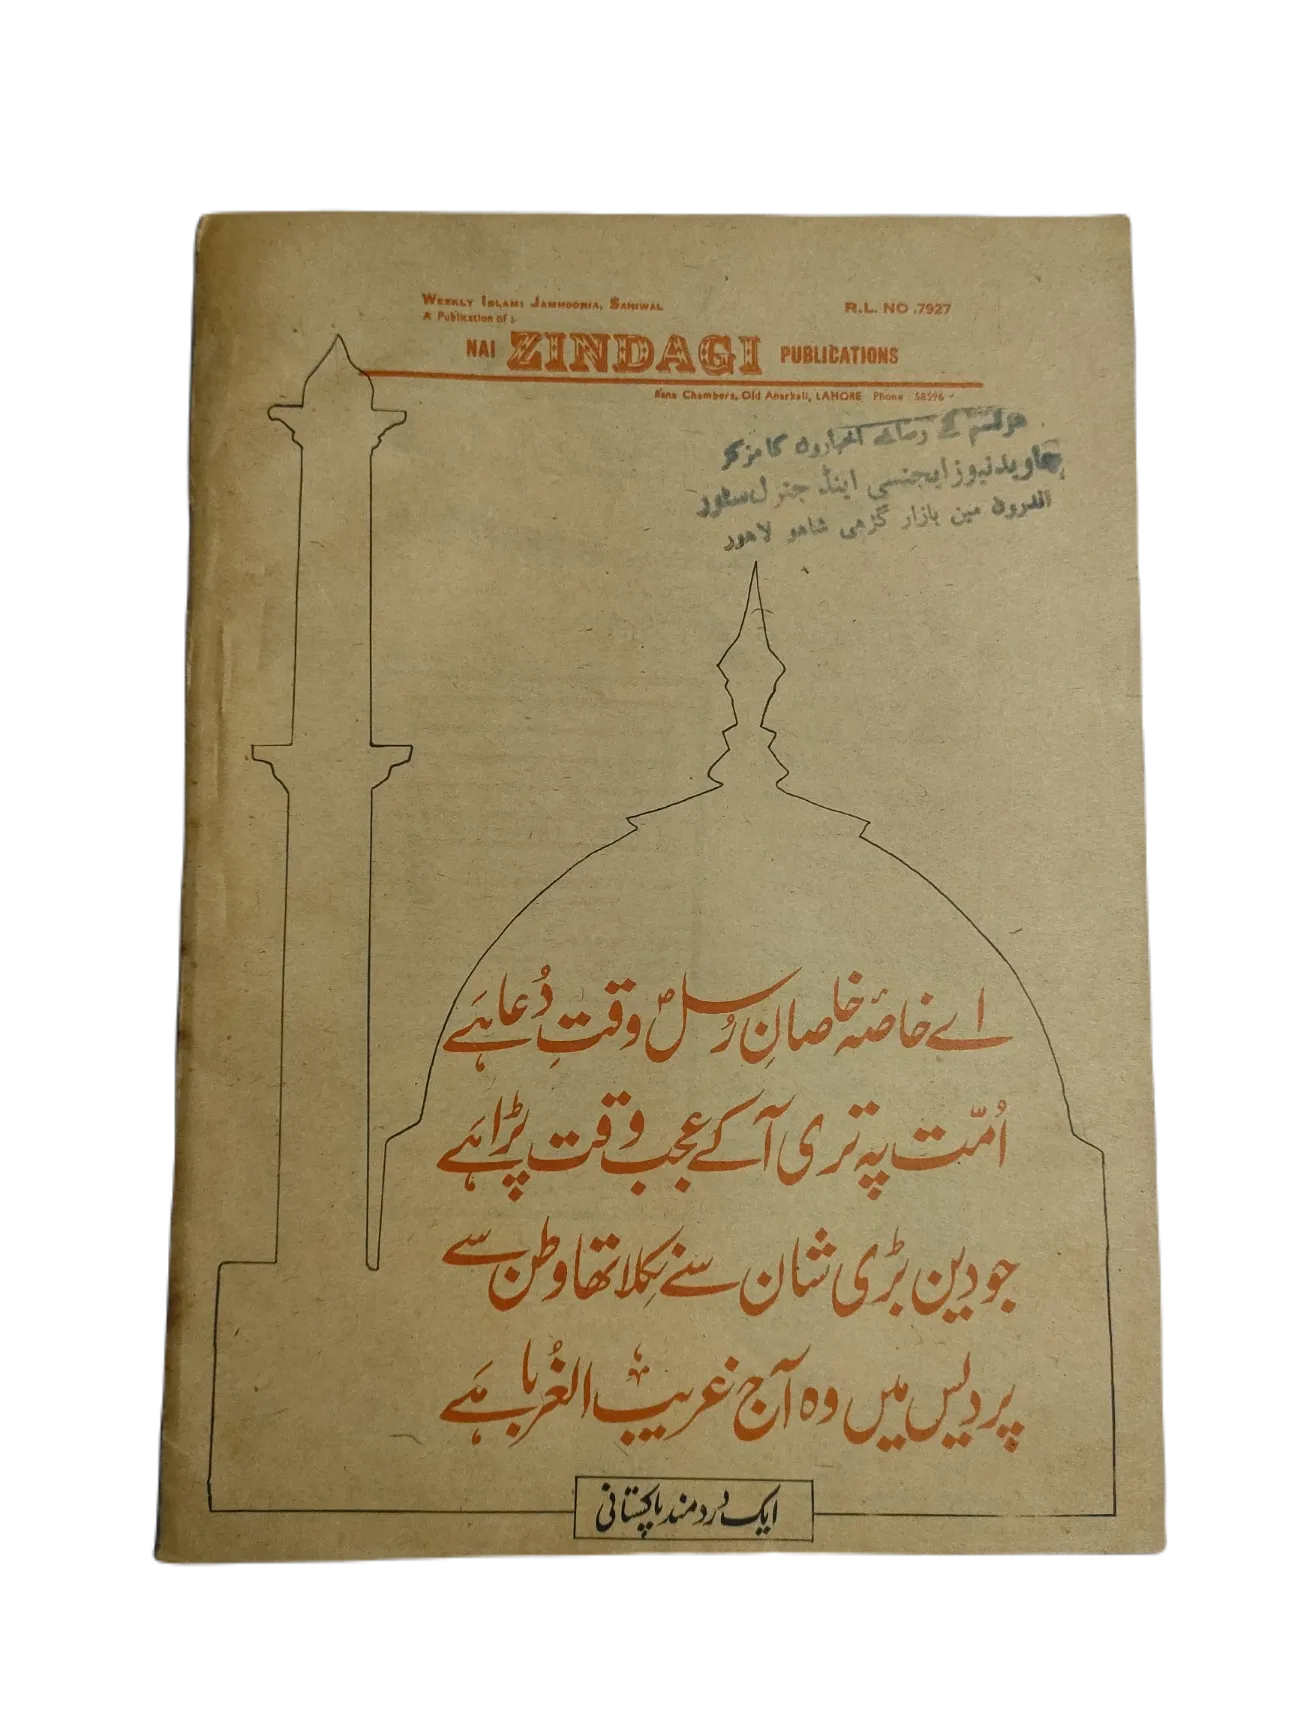 WEEKLY ISLAMI JAMHOORIA, SAHIWAL
R.L. NO .7927
A Publication of :
NAI ZINDAGI PUBLICATIONS
Rana Chambers, Old Anarkali, LAHORE Phone 58596
ہر قسم کے رسالے اخباروں کا مرکز
جاوید نیوز ایجنسی اینڈ جنرل سٹور
اندرون مین بازار گڑھی شاھو لاھور
اے خاصۂ خاصانِ رُسلؐ وقتِ دُعا ہَے
اُمّت پہ تری آ کے عجب وقت پڑا ہَے
جو دین بڑی شان سے نِکلا تھا وطن سے
پردیس میں وہ آج غریب الغُربا ہَے
ایک دردمند پاکستانی